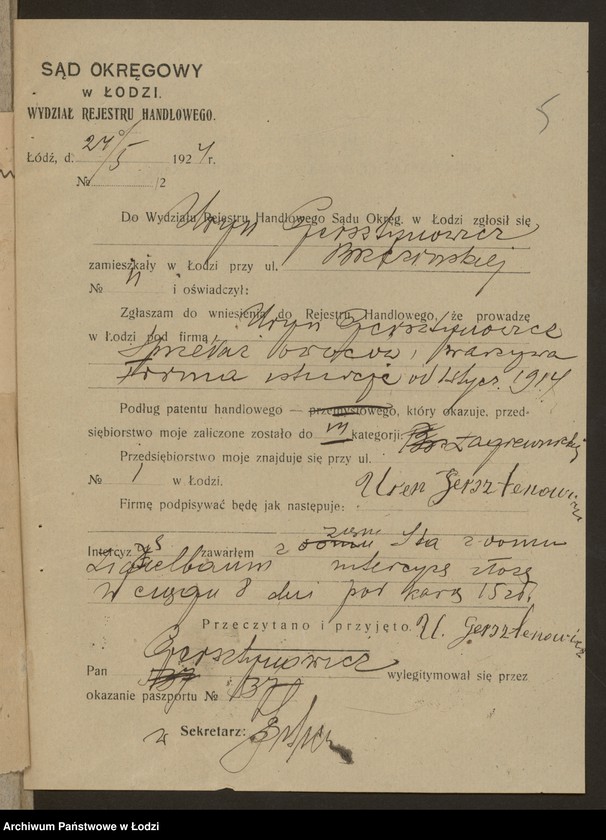 SĄD OKRĘGOWY
w ŁODZI.
WYDZIAŁ REJESTRU HANDLOWEGO.
5
Łódź, d. 24/5 1924 r.
№ /2
Do Wydziału Rejestru Handlowego Sądu Okręg. w Łodzi zgłosił się
Uryn Gersztynowicz
zamieszkały w Łodzi przy ul. Brzezińskiej
№ 11 i oświadczył:
Zgłaszam do wniesienia do Rejestru Handlowego, że prowadzę
w Łodzi pod firmą, Uryn Gersztynowicz
Sprzedaż owoców i warzywa
Firma istnieje od stycz. 1914
Podług patentu handlowego — przemysłowego, który okazuję, przed-
siębiorstwo moje zaliczone zostało do III kategorji.
Przedsiębiorstwo moje znajduje się przy ul. Zagajnikowej
№ 1 w Łodzi.
Firmę podpisywać będę jak następuje: Uren Gersztenowicz
Intercyzę zawarłem z żoną Itą z domu
intercyzę złożę
w ciągu 8 dni pod karą 15 zł.
Przeczytano i przyjęto. U. Gersztenowicz
Pan Gersztynowicz wylegitymował się przez
okazanie paszportu № 137
w Sekretarz:
Archiwum Państwowe w Łodzi